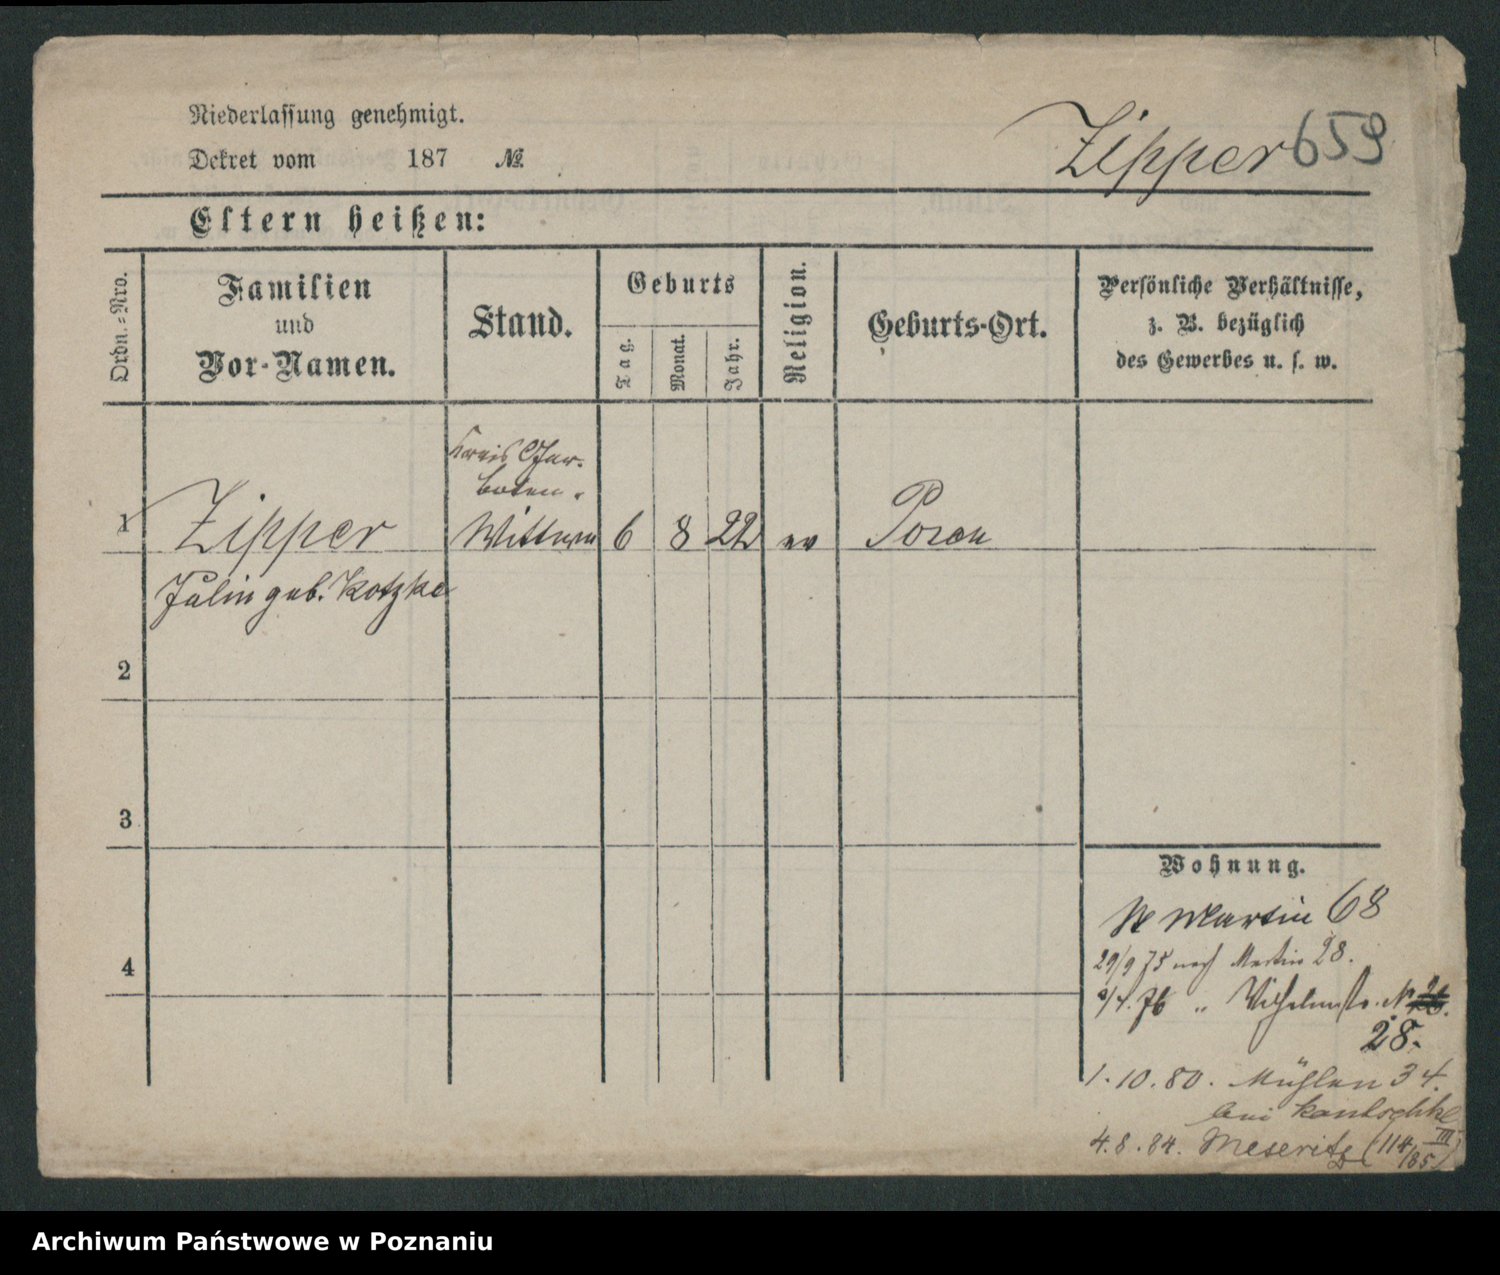 Niederlassung genehmigt.
Zipper 659
Dekret vom 187 №
Eltern heißen:
Ordn.-Nro.
Familien
und
Vor-Namen.
Stand.
Geburts
Tag.
Monat.
Jahr.
Religion.
Geburts-Ort.
Persönliche Verhältnisse,
z. B. bezüglich
des Gewerbes u. s. w.
Kreis
boten
1 Zipper Wittwe 6 8 22 ev Posen
Julie geb. Kotzke
2
3
4
Wohnung.
St Martin 68
29/9 75 nach Martin 28.
/4. 76 „ Wilhelmstr. No
28.
1.10.80. Mühlen 34.
bei
4.8.84. Meseritz (114/85 III)
Archiwum Państwowe w Poznaniu